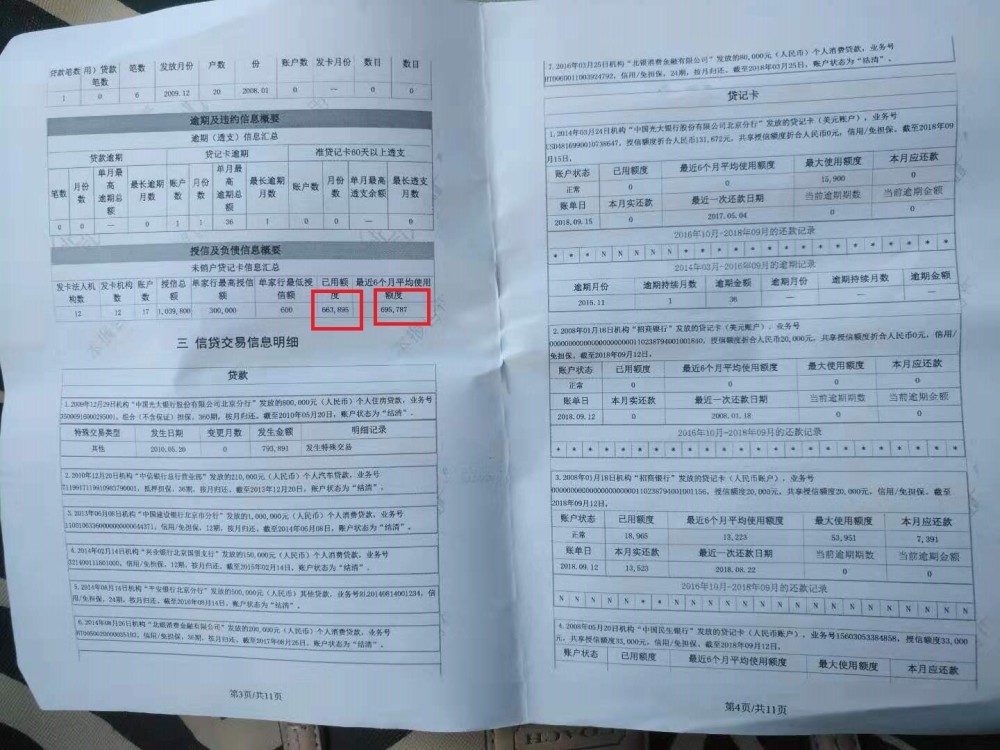 贷款笔数 用）贷款笔数 笔数 发放月份 户数 份 账户数 发卡月份 数目 数目
1 0 6 2009.12 20 2008.01 0 — 0 0
逾期及违约信息概要
逾期（透支）信息汇总
贷款逾期 贷记卡逾期 准贷记卡60天以上透支
笔数 月份数 单月最高逾期总额 最长逾期月数 账户数 月份数 单月最高逾期总额 最长逾期月数 账户数 月份数 单月最高透支余额 最长透支月数
0 0 — 0 1 1 36 1 0 0 — 0
授信及负债信息概要
未销户贷记卡信息汇总
发卡法人机构数 发卡机构数 账户数 授信总额 单家行最高授信额 单家行最低授信额 已用额度 最近6个月平均使用额度
12 12 17 1,039,800 300,000 600 663,895 695,787
三 信贷交易信息明细
贷款
1.2009年12月29日机构“中国光大银行股份有限公司北京分行”发放的800,000元（人民币）个人住房贷款，业务号
组合（不含保证）担保，360期，按月归还，截至2010年05月20日，账户状态为“结清”。
特殊交易类型 发生日期 变更月数 发生金额 明细记录
其他 2010.05.20 0 793,891 发生特殊交易
2.2010年12月20日机构“中信银行总行营业部”发放的210,000元（人民币）个人汽车贷款，业务号
抵押担保，36期，按月归还，截至2013年12月20日，账户状态为“结清”。
3.2013年06月08日机构“中国建设银行北京市分行”发放的1,000,000元（人民币）个人消费贷款，业务号
信用/免担保，12期，按月归还，截至2014年06月08日，账户状态为“结清”。
4.2014年02月14日机构“兴业银行北京国贸支行”发放的150,000元（人民币）个人消费贷款，业务号
信用/免担保，12期，按月归还，截至2015年02月14日，账户状态为“结清”。
5.2014年08月14日机构“平安银行北京分行”发放的500,000元（人民币）其他贷款，业务号RL20140814001234，信
用/免担保，24期，按月归还，截至2016年08月14日，账户状态为“结清”。
6.2014年08月26日机构“北银消费金融有限公司”发放的200,000元（人民币）个人消费贷款，业务号
信用/免担保，36期，按月归还，截至2017年08月26日，账户状态为“结清”。
第3页/共11页
7.2016年03月25日机构“北银消费金融有限公司”发放的60,000元（人民币）个人消费贷款，业务号
信用/免担保，24期，按月归还，截至2018年03月25日，账户状态为“结清”。
贷记卡
1.2014年03月24日机构“中国光大银行股份有限公司北京分行”发放的贷记卡（美元账户），业务号
授信额度折合人民币131,672元，共享授信额度折合人民币0元，信用/免担保，截至2018年09
月15日，
账户状态 已用额度 最近6个月平均使用额度 最大使用额度 本月应还款
正常 0 0 15,900 0
账单日 本月实还款 最近一次还款日期 当前逾期期数 当前逾期金额
2018.09.15 0 2017.05.04 0 0
2016年10月-2018年09月的还款记录
2014年03月-2016年09月的逾期记录
逾期月份 逾期持续月数 逾期金额 逾期月份 逾期持续月数 逾期金额
2015.11 1 36 — — —
2.2008年01月18日机构“招商银行”发放的贷记卡（美元账户），业务号
授信额度折合人民币20,000元，共享授信额度折合人民币0元，信用/
免担保，截至2018年09月12日，
账户状态 已用额度 最近6个月平均使用额度 最大使用额度 本月应还款
正常 0 0 0 0
账单日 本月实还款 最近一次还款日期 当前逾期期数 当前逾期金额
2018.09.12 0 2008.01.18 0 0
2016年10月-2018年09月的还款记录
* * * * * * * * * * * * * * * * * * * * * * * *
3.2008年01月18日机构“招商银行”发放的贷记卡（人民币账户），业务号
授信额度20,000元，共享授信额度20,000元，信用/免担保，截至
2018年09月12日，
账户状态 已用额度 最近6个月平均使用额度 最大使用额度 本月应还款
正常 18,965 13,223 53,951 7,391
账单日 本月实还款 最近一次还款日期 当前逾期期数 当前逾期金额
2018.09.12 13,523 2018.08.22 0 0
2016年10月-2018年09月的还款记录
4.2008年05月20日机构“中国民生银行”发放的贷记卡（人民币账户），业务号15603053384858，授信额度33,000
元，共享授信额度33,000元，信用/免担保，截至2018年09月12日，
账户状态 已用额度 最近6个月平均使用额度 最大使用额度 本月应还款
第4页/共11页
COACH